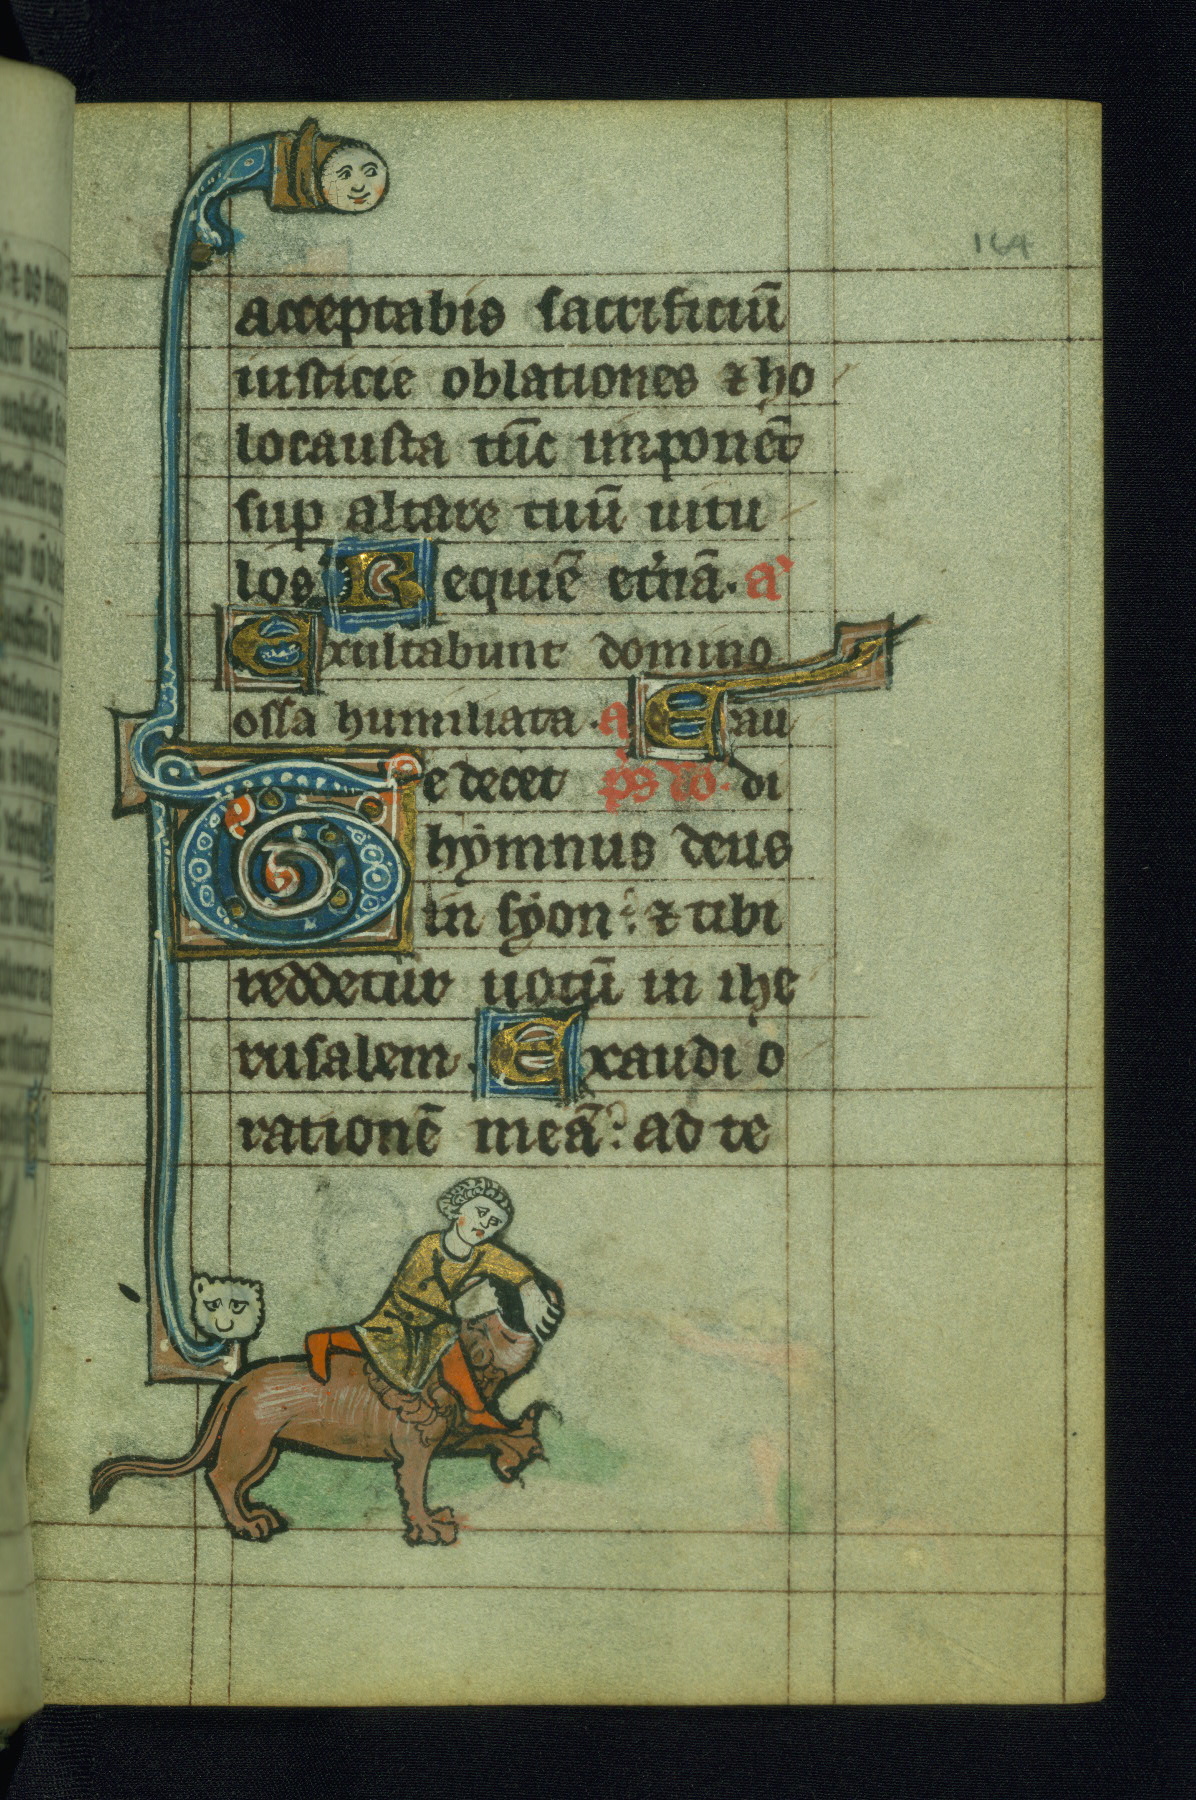 164
acceptabis sacrificiū
iusticie oblationes ⁊ ho
locausta tūc imponēt
sup altare tuū uitu
los Requiē et'nā. a'
Exultabunt domino
ossa humiliata. a Exau
Te decet ps dd. di
hẏmnus deus
in sẏon: ⁊ tibi
reddetur uotū in ihe
rusalem. Exaudi o
rationē meā: ad te